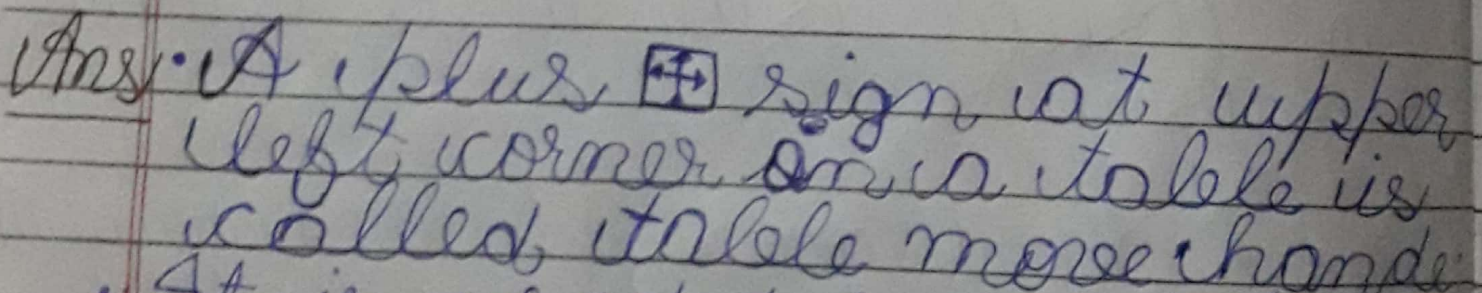 Ans. A plus ⊞ sign at upper
left corner on a table is
called table move hande